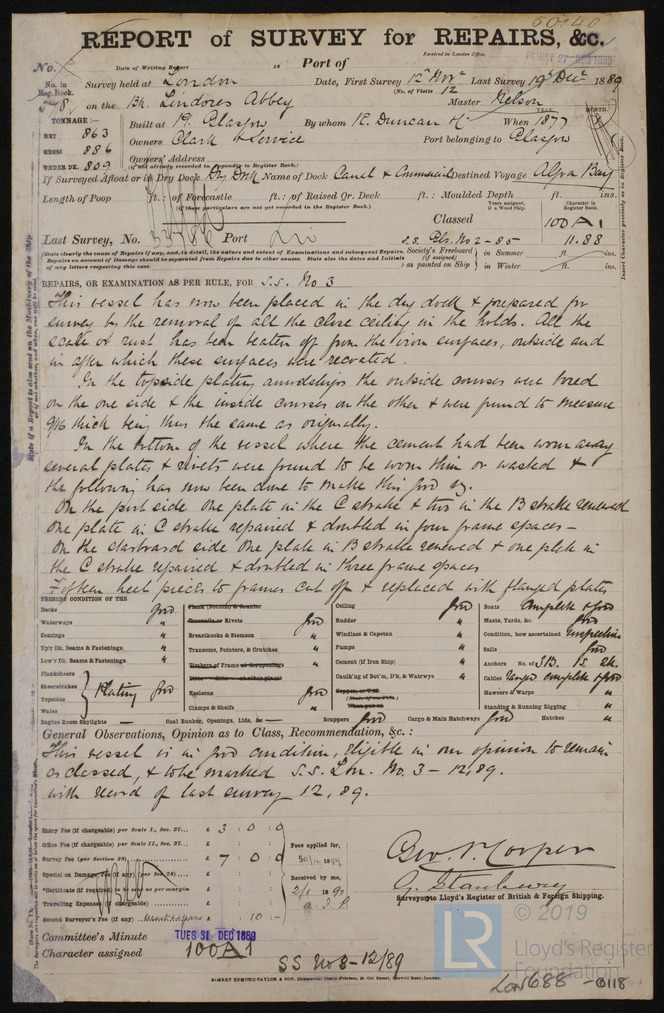 50140
REPORT of SURVEY for REPAIRS, &c.
No.
Date of Writing Report 18 Port of
Received in London Office. FRIDAY 27 DEC 1889
No. in Reg. Book. Survey held at London Date, First Survey 12th Novr Last Survey 19th Decr 1889
(No. of Visits 12
578 on the Bk. Lindores Abbey Master Nelson
TONNAGE YEAR. MONTH.
Built at Pt. Glasgow By whom R. Duncan & Co When 1877
NET 863
GROSS 886 Owners Clark & Service Port belonging to Glasgow
UNDER DK. 809 Owners' Address
(if not already recorded in Appendix to Register Book.)
If Surveyed Afloat or in Dry Dock Dry Dock Name of Dock Canal & Commercial Destined Voyage Algoa Bay
Length of Poop ft.: of Forecastle ft.: of Raised Qr. Deck ft.: Moulded Depth ft. ins.
(if these particulars are not yet recorded in the Register Book.)
Years assigned, if a Wood Ship. Character in Register Book.
Classed 100A1
Last Survey, No. Port S.S. Gls. No 2 - 85 11.88
Society's Freeboard (if assigned) as painted on Ship } in Summer ft. ins.
in Winter ft. ins.
REPAIRS, OR EXAMINATION AS PER RULE, FOR S.S. No 3
This vessel has now been placed in the dry dock & prepared for
survey by the removal of all the close ceiling in the holds. All the
scale or rust has been beaten off from the iron surfaces, outside and
in after which these surfaces were recoated.
In the topside plating amidships the outside courses were bored
on the one side & the inside courses on the other & were found to measure
9/16 thick being thus the same as originally.
In the bottom of the vessel where the cement had been worn away
several plates & rivets were found to be worn thin or wasted &
the following has now been done to make this good vz.
On the port side one plate in the C strake & two in the B strake renewed
one plate in C strake repaired & doubled in four frame spaces -
On the starboard side one plate in B strake renewed & one plate in
the C strake repaired & doubled in three frame spaces
Fifteen heel pieces to frames cut off & replaced with flanged plates
PRESENT CONDITION OF THE
Decks good
Waterways "
Comings "
Up'r Dk. Beams & Fastenings "
Low'r Dk. Beams & Fastenings "
Planksheers
Sheerstrakes
Topsides
Wales
} Plating good
Engine Room Skylights —
Plank (Bottom) & Counter
Treenails or Rivets good
Breasthooks & Stemson "
Transoms, Pointers, & Crutches "
Timbers of Frame at the openings "
Keelsons good
Clamps & Shelfs "
Coal Bunker, Openings, Lids, &c —
Ceiling good
Rudder "
Windlass & Capstan "
Pumps "
Cement (if Iron Ship) "
Caulk'ng of Bot'm, D'k, & Waterways "
Scuppers good
Cargo & Main Hatchways good
Boats Complete & good
Masts, Yards, &c. good
Condition, how ascertained Inspection
Sails good
Anchors No. of 3B. 1S. 2k.
Cables ranged complete & good
Hawsers & Warps "
Standing & Running Rigging "
Hatches "
General Observations, Opinion as to Class, Recommendation, &c. :
This vessel is in good condition, Eligible in our opinion to remain
as classed, & to be marked S.S. Lon. No. 3 - 12,89.
with record of last survey 12,89.
Entry Fee (if chargeable) per Scale I., Sec. 27... £ 3 : 0 : 0
Office Fee (if chargeable) per Scale II., Sec. 27... £
Survey Fee (per Section 28) £ 7 : 0 : 0
Special on Damage, Fee (if any) (per Sec. 28) £
*Certificate (if required) to be sent as per margin
Travelling Expenses (if chargeable) £
Second Surveyor's Fee (if any) £ 10 : -
Fees applied for,
30/12 1889
Received by me,
2/1 1890
Geo. P. Cooper
G. Stanbury
Surveyor to Lloyd's Register of British & Foreign Shipping.
Committee's Minute TUES 31 DEC 1889
Character assigned 100A1
SS No 3 - 12/89
ROBERT EDMUND TAYLOR & SON
LR © 2019
Lloyd's Register
Foundation
LON688 - 0118